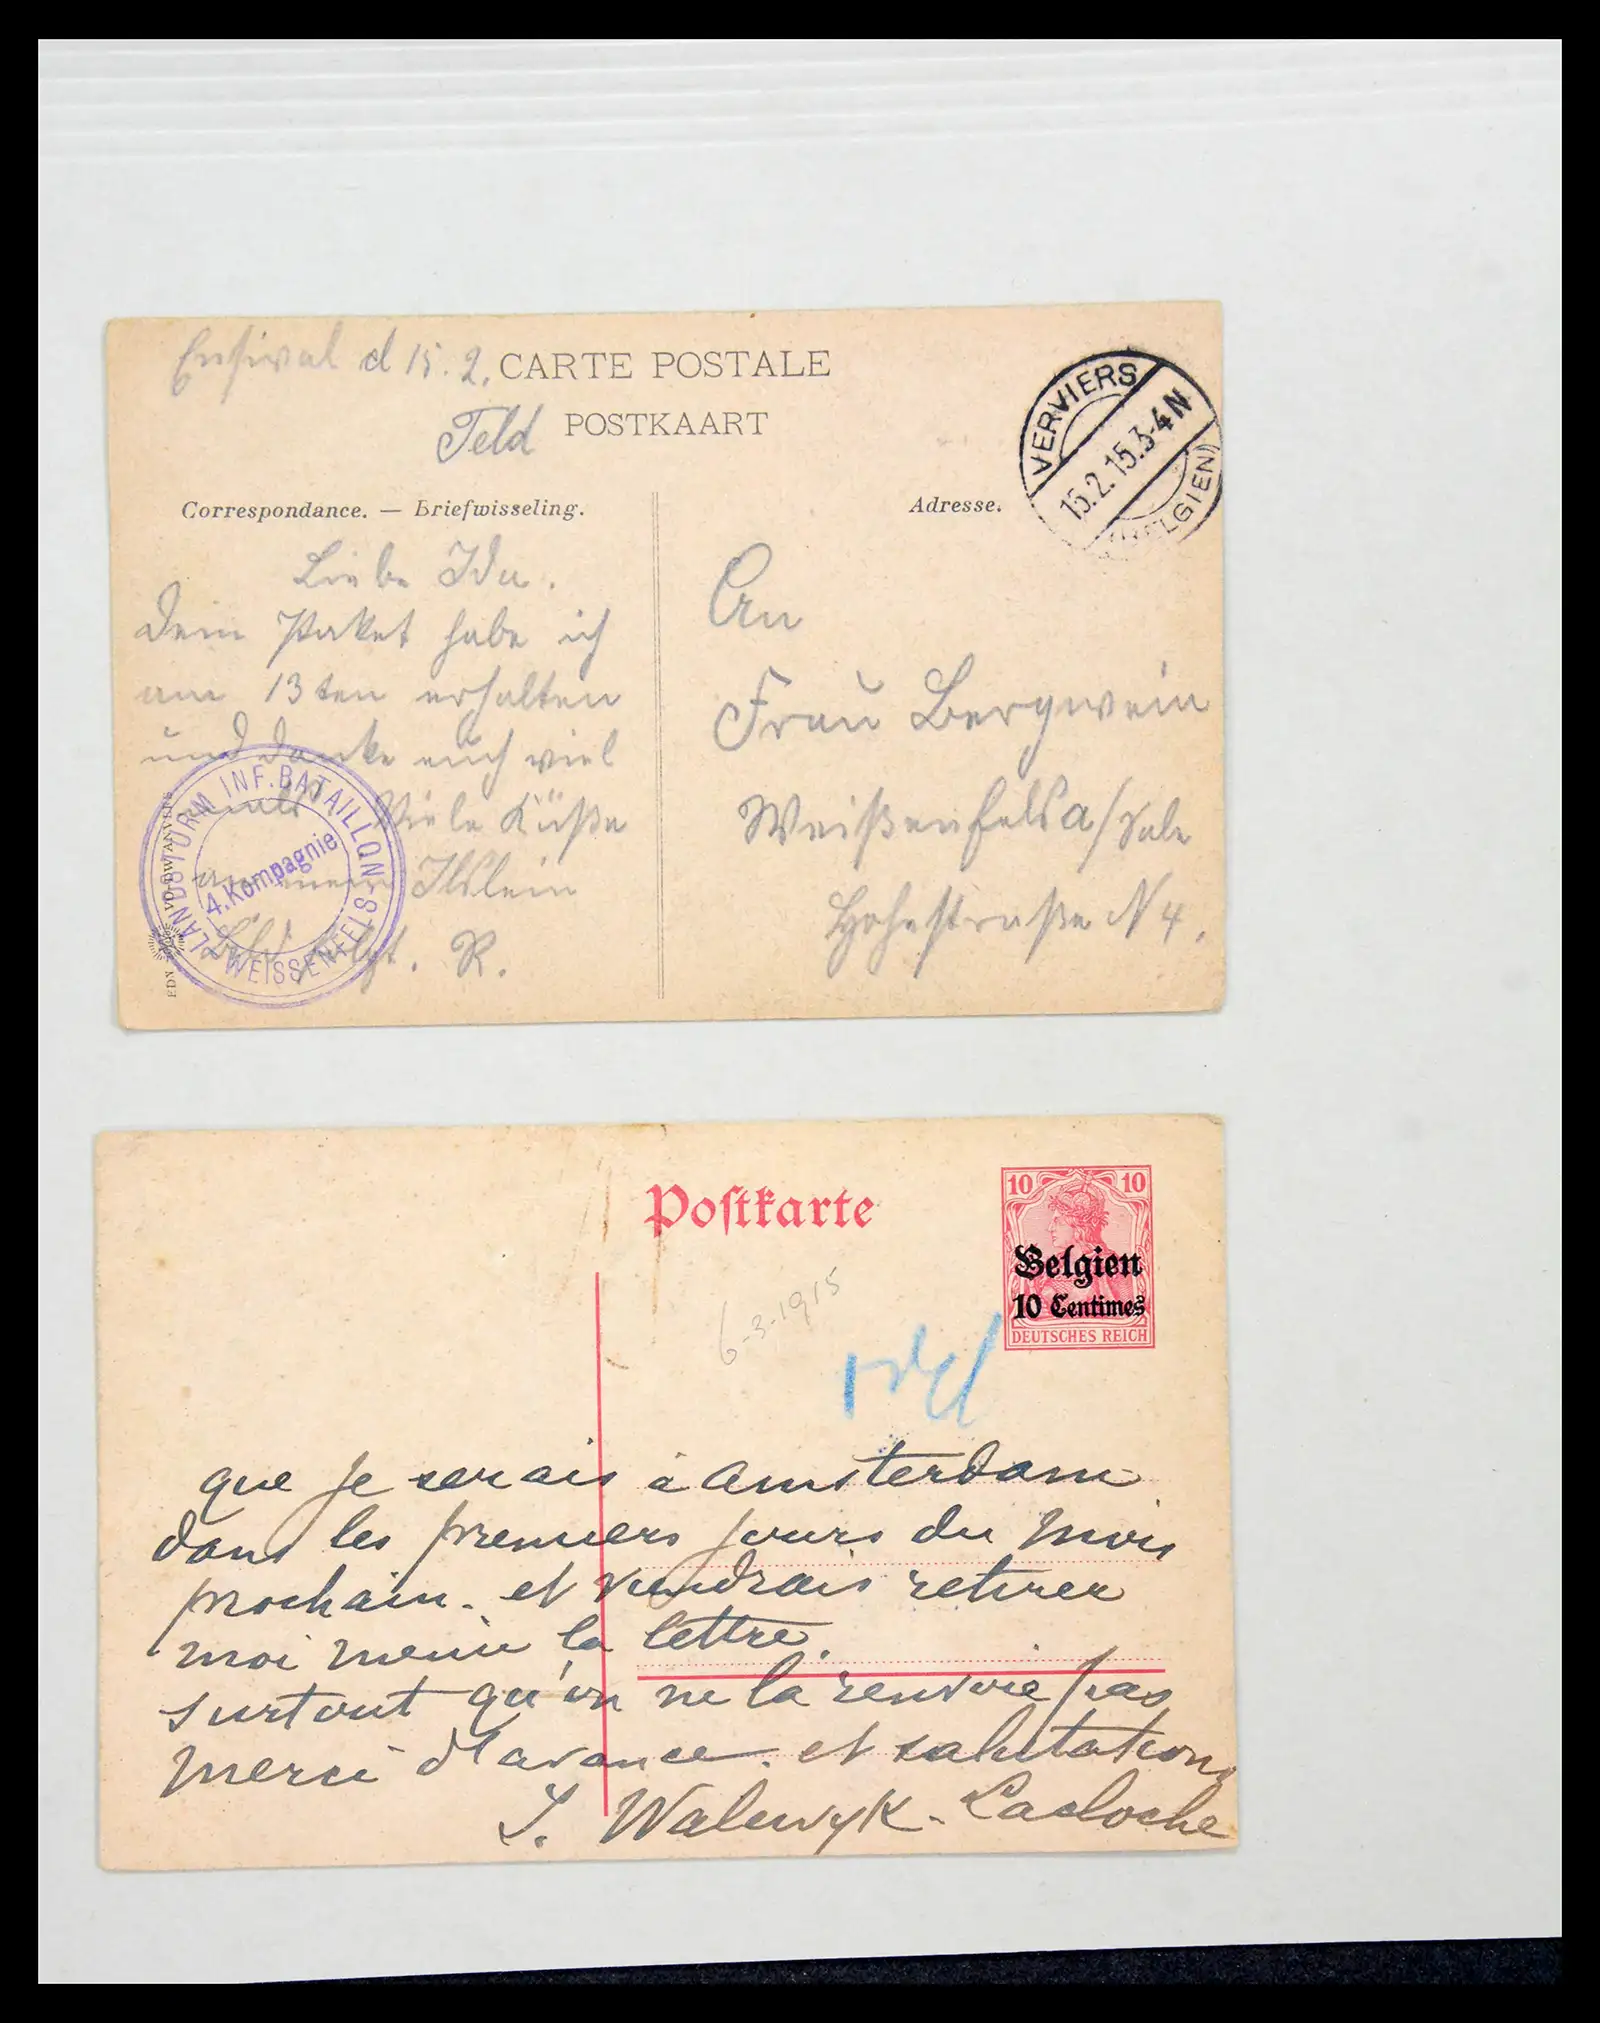 Ensival d 15.2.
CARTE POSTALE
Feld POSTKAART
VERVIERS
15.2.15.3-4N
(BELGIEN)
Correspondance. — Briefwisseling.
Adresse.
Liebe Ida.
Dein Paket habe ich
am 13ten erhalten
und danke euch viel
mals Viele Küße
an mein Ilslein
R.
LANDSTURM INF.BATAILLON
4. Kompagnie
WEISSENFELS
An
Frau Bergwein
Weißenfels a/Sale
Hohestraße N 4.
Postkarte
10 10
Belgien
10 Centimes
DEUTSCHES REICH
6-3-1915
que je serais à Amsterdam
dans les premiers jours du mois
prochain. et viendrais retirer
moi meme la lettre.
surtout qu'on ne la renvoie pas
merci d'avance. et salutations
J. Walewyk-Lacloche